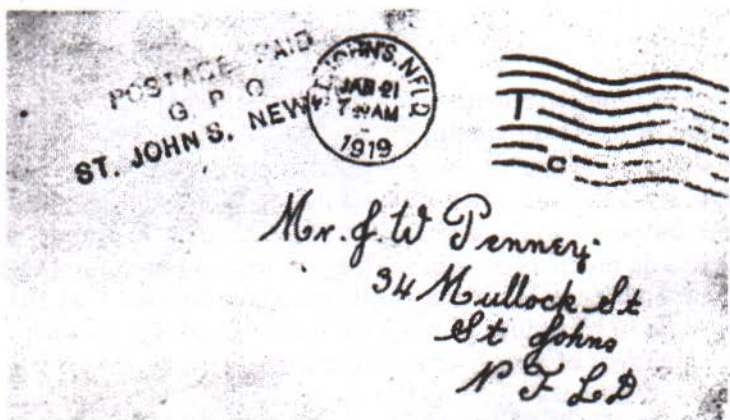 POSTAGE PAID
G P O
ST. JOHNS. NEW
ST. JOHN'S, NFLD
JAN 21
AM
1919
1
C
Mr. J. W Penney
34 Mullock St
St Johns
N F L D